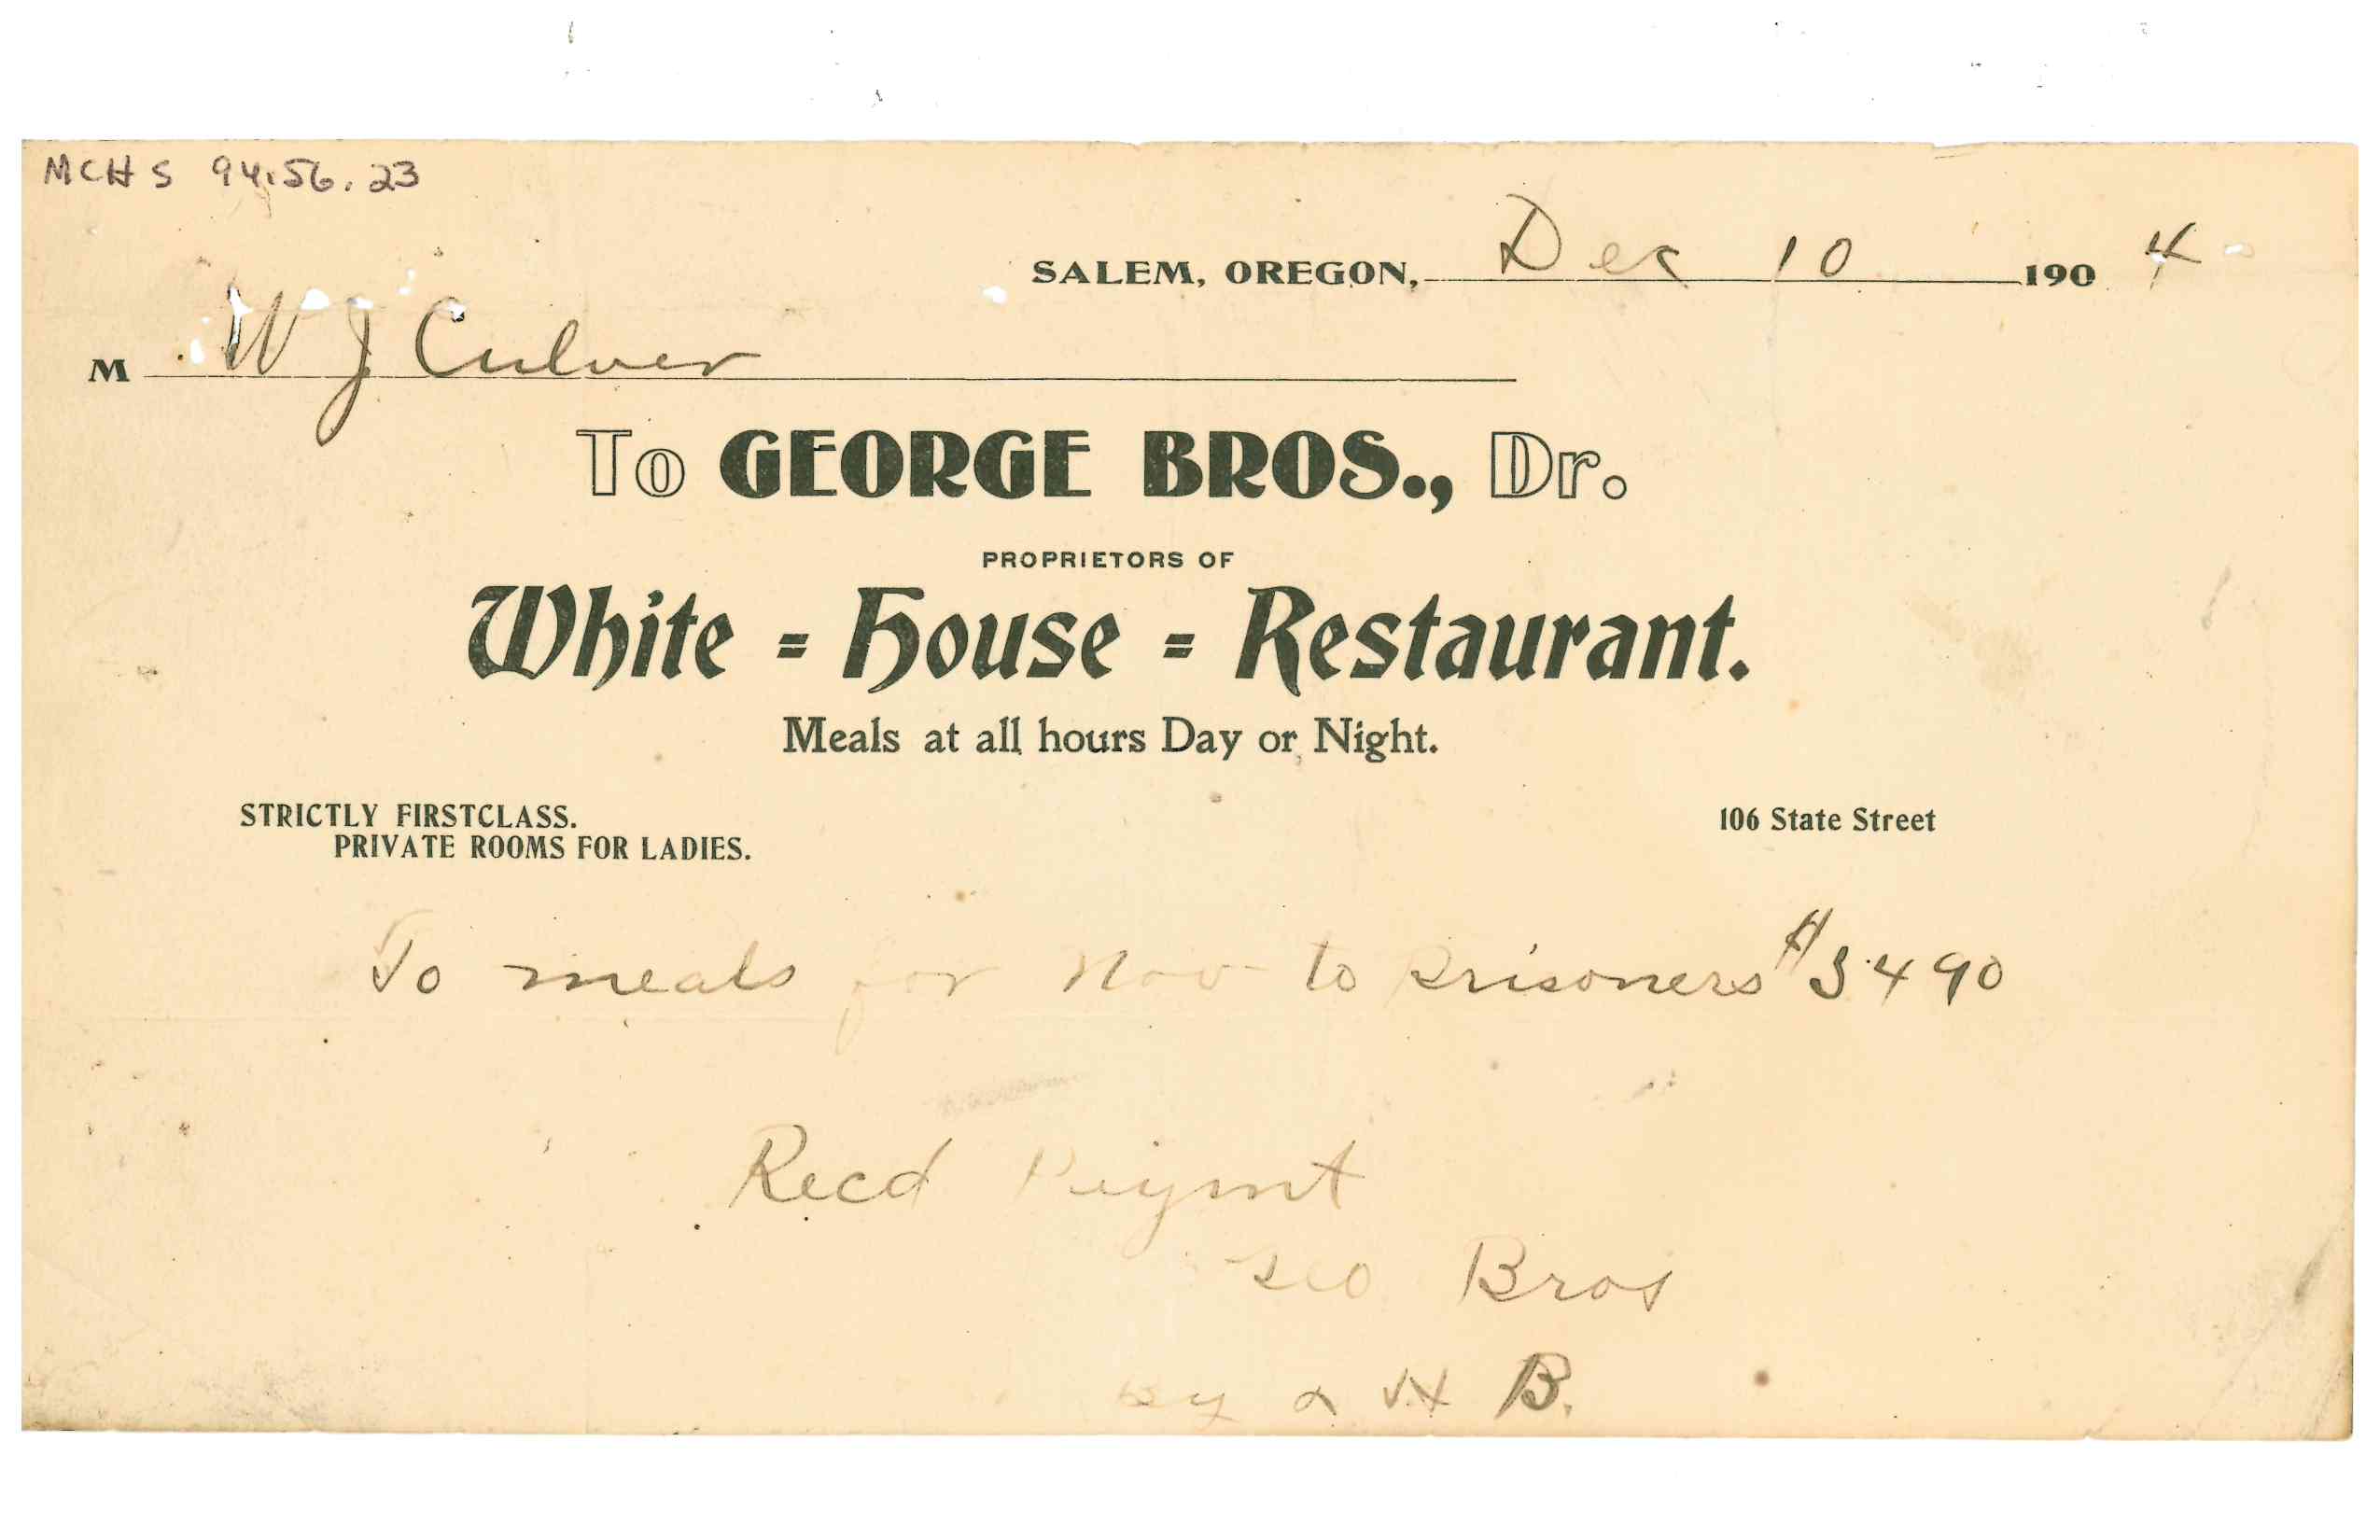 MCHS 94.56.23
SALEM, OREGON, Dec 10 1904
M W J Culver
To GEORGE BROS., Dr.
PROPRIETORS OF
White = House = Restaurant.
Meals at all hours Day or Night.
STRICTLY FIRSTCLASS.
PRIVATE ROOMS FOR LADIES.
106 State Street
To meals for Nov to prisoners $34 90
Recd Paymt
Geo Bros
By H B.